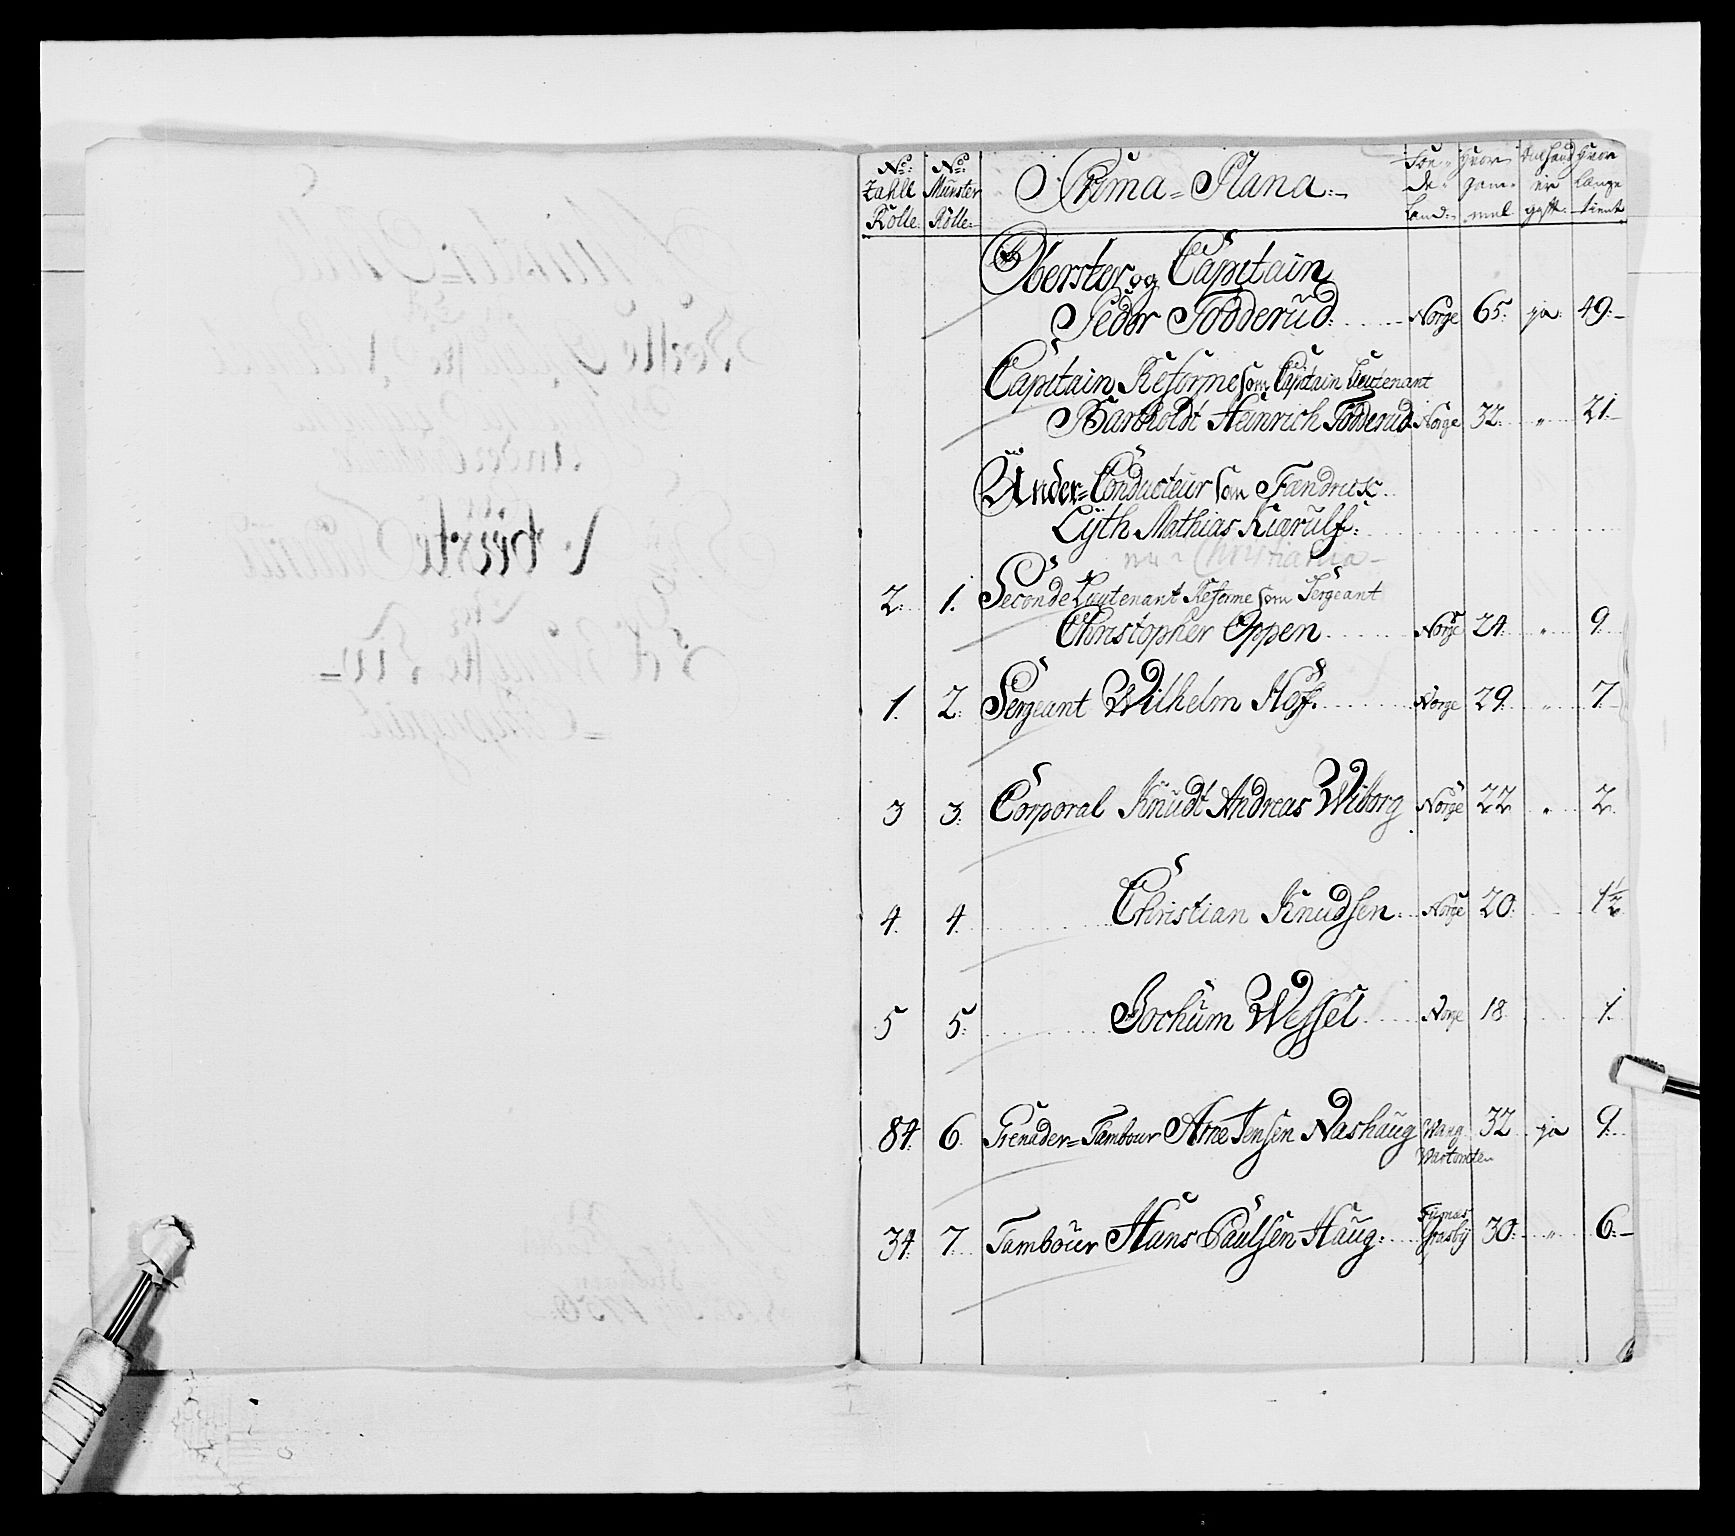 No: Zahle Rolle.
No: Münster Rolle:
Prima=Plana:
Föe=de=Land:
Hvor gam=mel
Om hand er gyft:
Hvor længe tient
Oberster og Capitain
Peder Todderud: Norge 65: ja: 49:
Capitain Reforme som Capitain Leutenant
Bartholdt Heinrich Todderud Norge 32: " 21
Under=Conducteur som Fandrick
Lÿth Mathias Kierulf:
Christiania
2: 1. Seconde Leutenant Reforme som Sergeant
Christopher Oppen Norge 24 " 9
1. 2: Sergeant Wilhelm Hoff Norge 29. " 7
3 3: Corporal Knudt Andreas Wiborg Norge 22 " 2.
4. 4. Christian Knudsen Norge 20: 1½
5 5: Jochum Wessel Norge 18 1.
84. 6. Grenader=Tambour Arne Jensen Nashaug Wang 32 ja 9.
34. 7. Tambour Hans Paulsen Haug: Grasbÿ 30: " 6: